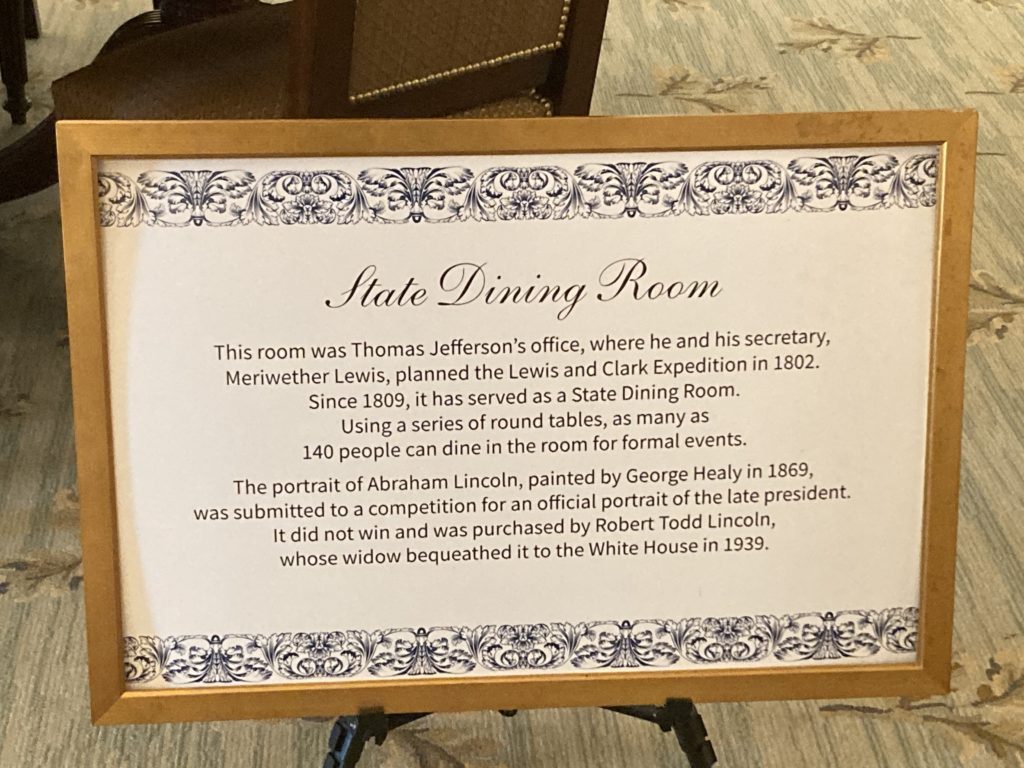 State Dining Room
This room was Thomas Jefferson's office, where he and his secretary,
Meriwether Lewis, planned the Lewis and Clark Expedition in 1802.
Since 1809, it has served as a State Dining Room.
Using a series of round tables, as many as
140 people can dine in the room for formal events.
The portrait of Abraham Lincoln, painted by George Healy in 1869,
was submitted to a competition for an official portrait of the late president.
It did not win and was purchased by Robert Todd Lincoln,
whose widow bequeathed it to the White House in 1939.